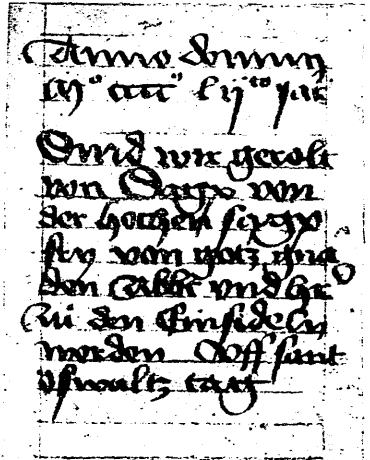 Anno domini
Mº cccc lijto jar
Sind wir gerolt
von Sagx von
der hochen sagx
fry von gotz gna
den Abbt vnd her
zu den Einsideln
worden Vff sant
oswaltz tag